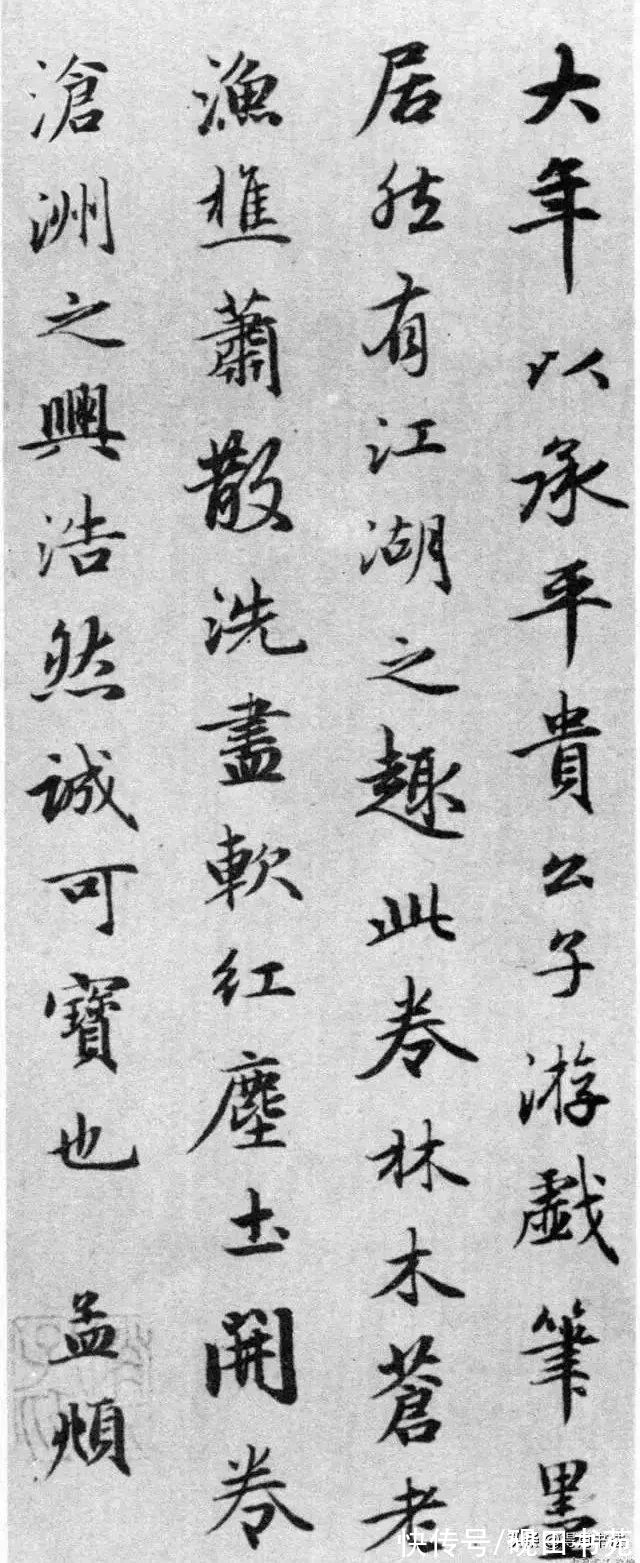 大年以承平貴公子游戯筆墨
居然有江湖之趣此卷林木蒼老
漁樵蕭散洗盡軟红塵土開卷
滄洲之興浩然誠可寶也 孟頫
快传号/砚田书苑